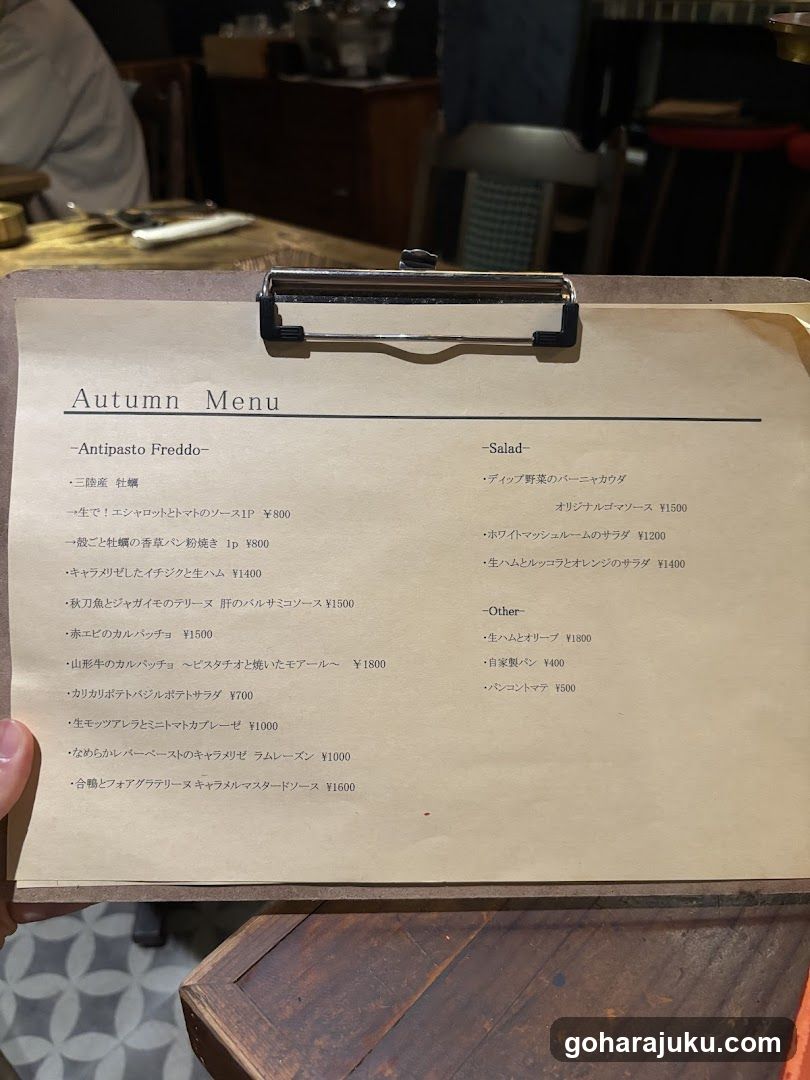 Autumn Menu
-Antipasto Freddo-
・三陸産 牡蠣
→生で！エシャロットとトマトのソース1P ￥800
→殻ごと牡蠣の香草パン粉焼き 1p ¥800
・キャラメリゼしたイチジクと生ハム ¥1400
・秋刀魚とジャガイモのテリーヌ 肝のバルサミコソース ¥1500
・赤エビのカルパッチョ ¥1500
・山形牛のカルパッチョ ～ピスタチオと焼いたモアール～ ￥1800
・カリカリポテトバジルポテトサラダ ¥700
・生モッツアレラとミニトマトカプレーゼ ¥1000
・なめらかレバーペーストのキャラメリゼ ラムレーズン ¥1000
・合鴨とフォアグラテリーヌ キャラメルマスタードソース ¥1600
-Salad-
・ディップ野菜のバーニャカウダ
オリジナルゴマソース ¥1500
・ホワイトマッシュルームのサラダ ¥1200
・生ハムとルッコラとオレンジのサラダ ¥1400
-Other-
・生ハムとオリーブ ¥1800
・自家製パン ¥400
・パンコントマテ ¥500
goharajuku.com